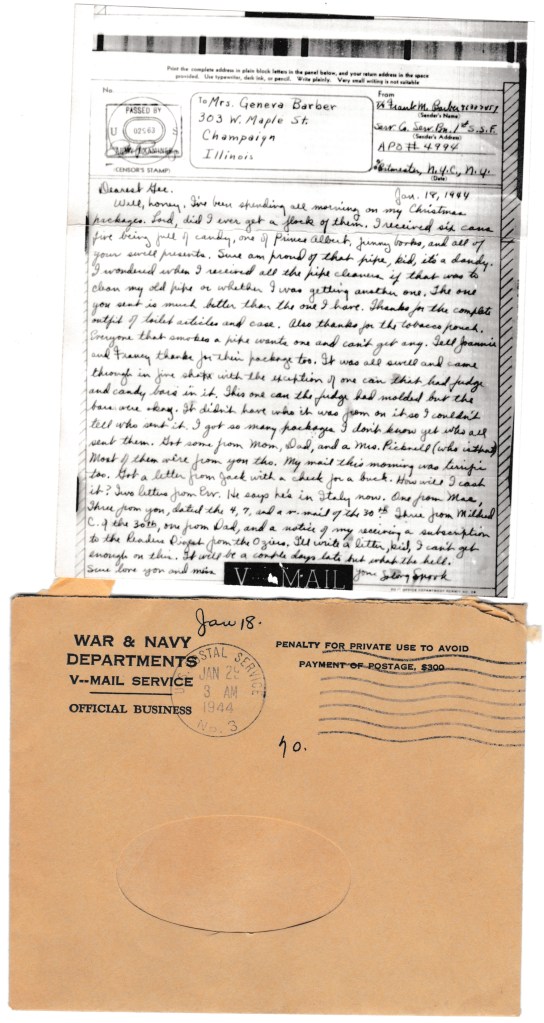 Print the complete address in plain block letters in the panel below, and your return address in the space
provided. Use typewriter, dark ink, or pencil. Write plainly. Very small writing is not suitable
No.
PASSED BY
U S
02563
ARMY EXAMINER
(CENSOR'S STAMP)
To Mrs. Geneva Barber
303 W. Maple St.
Champaign
Illinois
From
Frank M. Barber
(Sender's Name)
Serv Co. Serv. Bn. 1st S.S.F.
(Sender's Address)
APO # 4994
% Postmaster, N.Y.C., N.Y.
(Date)
Jan. 18, 1944
Dearest Gee.
Well, honey, I've been spending all morning on my Christmas
packages. Lord, did I ever get a flock of them. I received six cans
five being full of candy, one of Prince Albert, funny books, and all of
your swell presents. Sure am proud of that pipe, kid, it's a dandy.
I wondered when I received all the pipe cleaners if that was to
clean my old pipe or whether I was getting another one. The one
you sent is much better than the one I have. Thanks for the complete
outfit of toilet articles and case. Also thanks for the tobacco pouch.
Everyone that smokes a pipe wants one and can't get any. Tell Joannie
and thanks for their package too. It was all swell and came
through in fine shape with the exception of one can that had fudge
and candy bars in it. This one can the fudge had molded but the
bars were okay. It didn't have who it was from on it so I couldn't
tell who sent it. I got so many packages I don't know yet who all
sent them. Got some from Mom, Dad, and a Mrs. Picknell (who is that)
Most of them were from you tho. My mail this morning was terrific
too. Got a letter from Jack with a check for a buck. How will I cash
it? Two letters from Erv. He says he's in Italy now. One from Mac,
Three from you, dated the 4, 7, and a v-mail of the 30th Three from Mildred
C. of the 30th, one from Dad, and a notice of my receiving a subscription
to the Readers Digest from the Oziers. I'll write a letter, kid, I can't get
enough on this. It will be a couple days late but what the hell.
Sure love you and miss you
V - - - MAIL
Jan 18.
WAR & NAVY
DEPARTMENTS
V--MAIL SERVICE
OFFICIAL BUSINESS
U.S. POSTAL SERVICE
JAN 29
3 AM
1944
No. 3
PENALTY FOR PRIVATE USE TO AVOID
PAYMENT OF POSTAGE, $300